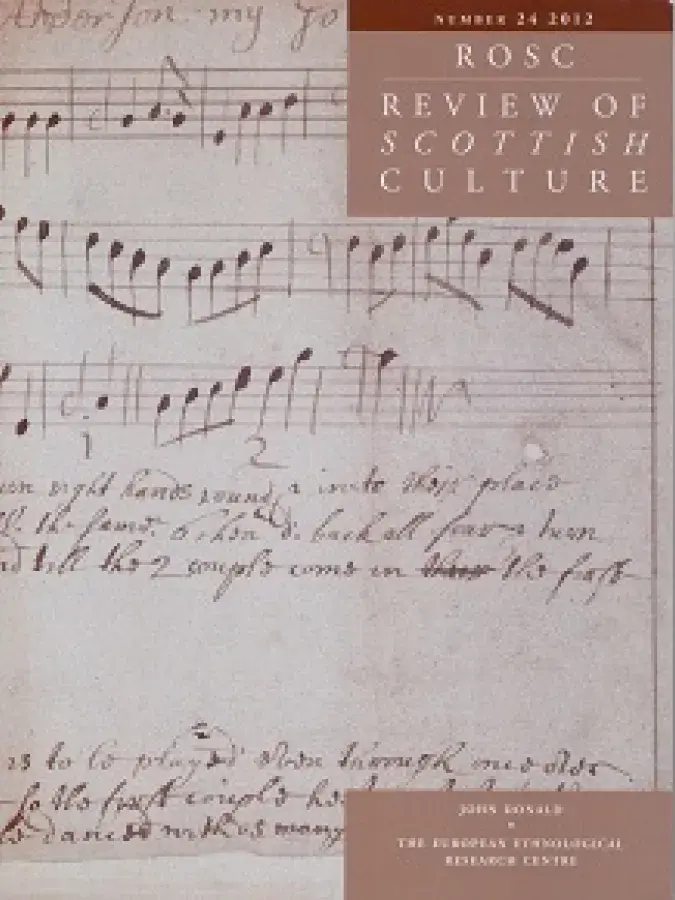 Anderson my Jo
NUMBER 24 2012
ROSC
REVIEW OF
SCOTTISH
CULTURE
1 2
right hands round & into their place
the same. back all four & turn
till the 2 couple come in the first
to be played even through
so the first couple
danced with as many
JOHN DONALD
THE EUROPEAN ETHNOLOGICAL
RESEARCH CENTRE